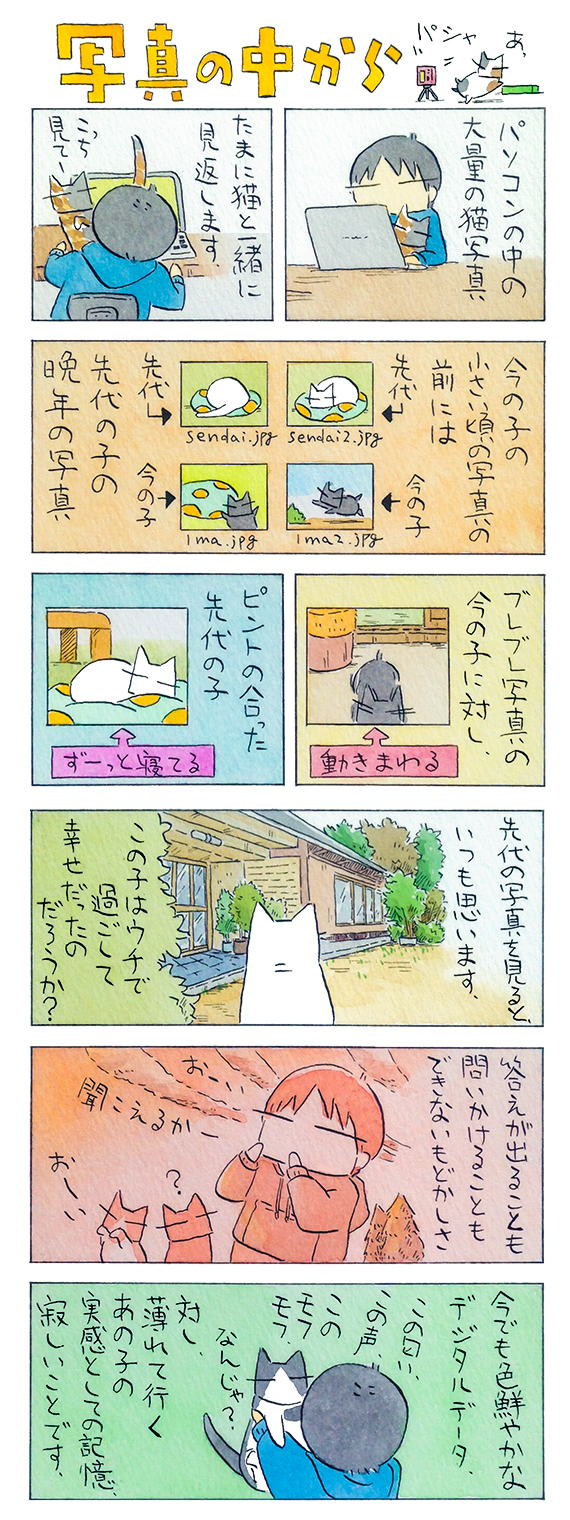 写真の中から
パシャ
あ、
パソコンの中の
大量の猫写真
たまに猫と一緒に
見返します
こっち
見てー
今の子の
小さい頃の写真の
前には
先代の子の
晩年の写真
先代
sendai2.jpg
先代
sendai.jpg
今の子
ima2.jpg
今の子
ima.jpg
ブレブレ写真の
今の子に対し、
動きまわる
ピントの合った
先代の子
ずーっと寝てる
先代の写真を見ると、
いつも思います、
この子はウチで
過ごして
幸せだったの
だろうか?
答えが出ることも
問いかけることも
できないもどかしさ
おーい
聞こえるかー
?
おーい
今でも色鮮やかな
デジタルデータ、
この匂い、
この声、
この
モフモフ、
なんじゃ?
対し、
薄れて行く
あの子の
実感としての記憶、
寂しいことです、